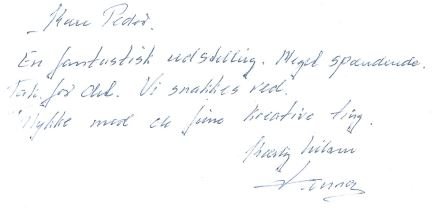 Kære Peder.
En fantastisk udstilling. Meget spændende.
Tak for det. Vi snakkes ved.
Tillykke med de fine kreative ting.
Kærlig hilsen